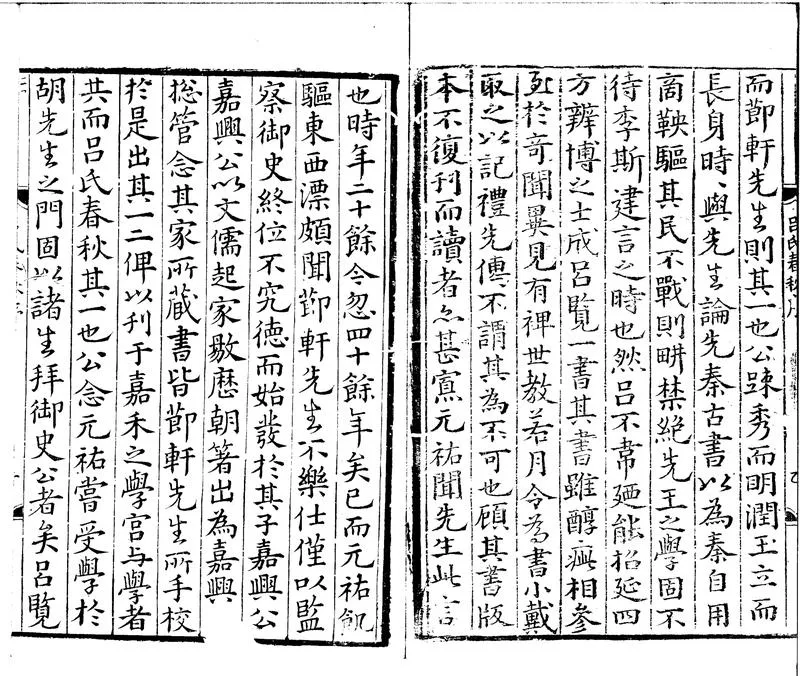 而節軒先生則其一也公踈秀而明潤玉立而
長身時〻與先生論先秦古書以為秦自用
商鞅驅其民不戰則畊禁絕先王之學固不
待李斯建言之時也然呂不韋廼能招延四
方辨博之士成呂覽一書其書雖醇疵相參
至於奇聞異見有裨世教若月令為書小戴
取之以記禮先傳不謂其為不可也顧其書版
本不復刊而讀者亦甚寡元祐聞先生此言
也時年二十餘今忽四十餘年矣已而元祐飢
驅東西漂頗聞節軒先生不樂仕僅以監
察御史終位不究徳而始發於其子嘉興公
嘉興公以文儒起家敭歷朝著出為嘉興
捴管念其家所蔵書皆節軒先生所手校
於是出其一二俾以刊于嘉禾之學宮与學者
共而呂氏春秋其一也公念元祐嘗受學於
胡先生之門固以諸生拜御史公者矣呂覽
呂氏春秋序